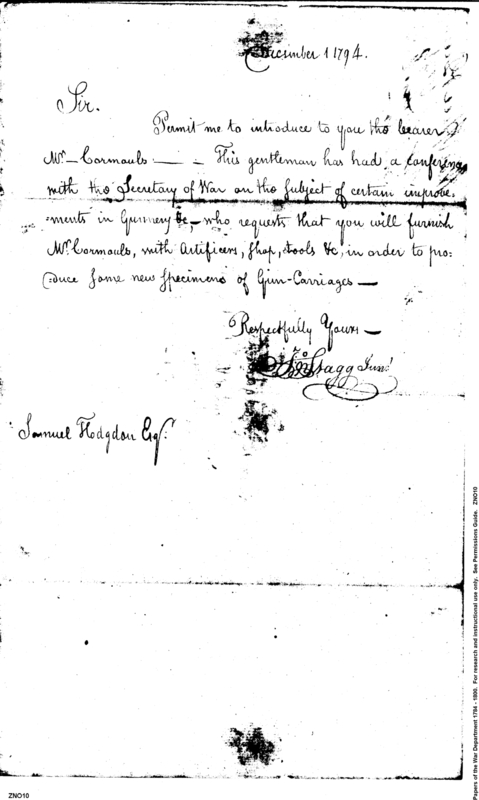 December 1 1794.
Sir.
Permit me to introduce to you the bearer
Mr. Cormouls — — This gentleman has had a conference
with the Secretary of War on the Subject of certain improve-
-ments in Gunnery &c, who requests that you will furnish
Mr. Cormouls, with Artificers, Shop, tools &c, in order to pro:
duce some new specimens of Gun-Carriages —
Respectfully Yours —
Jno Stagg Junr.
Samuel Hodgdon Esqr.
Papers of the War Department 1784 - 1800. For research and instructional use only. See Permissions Guide. ZNO10
ZNO10